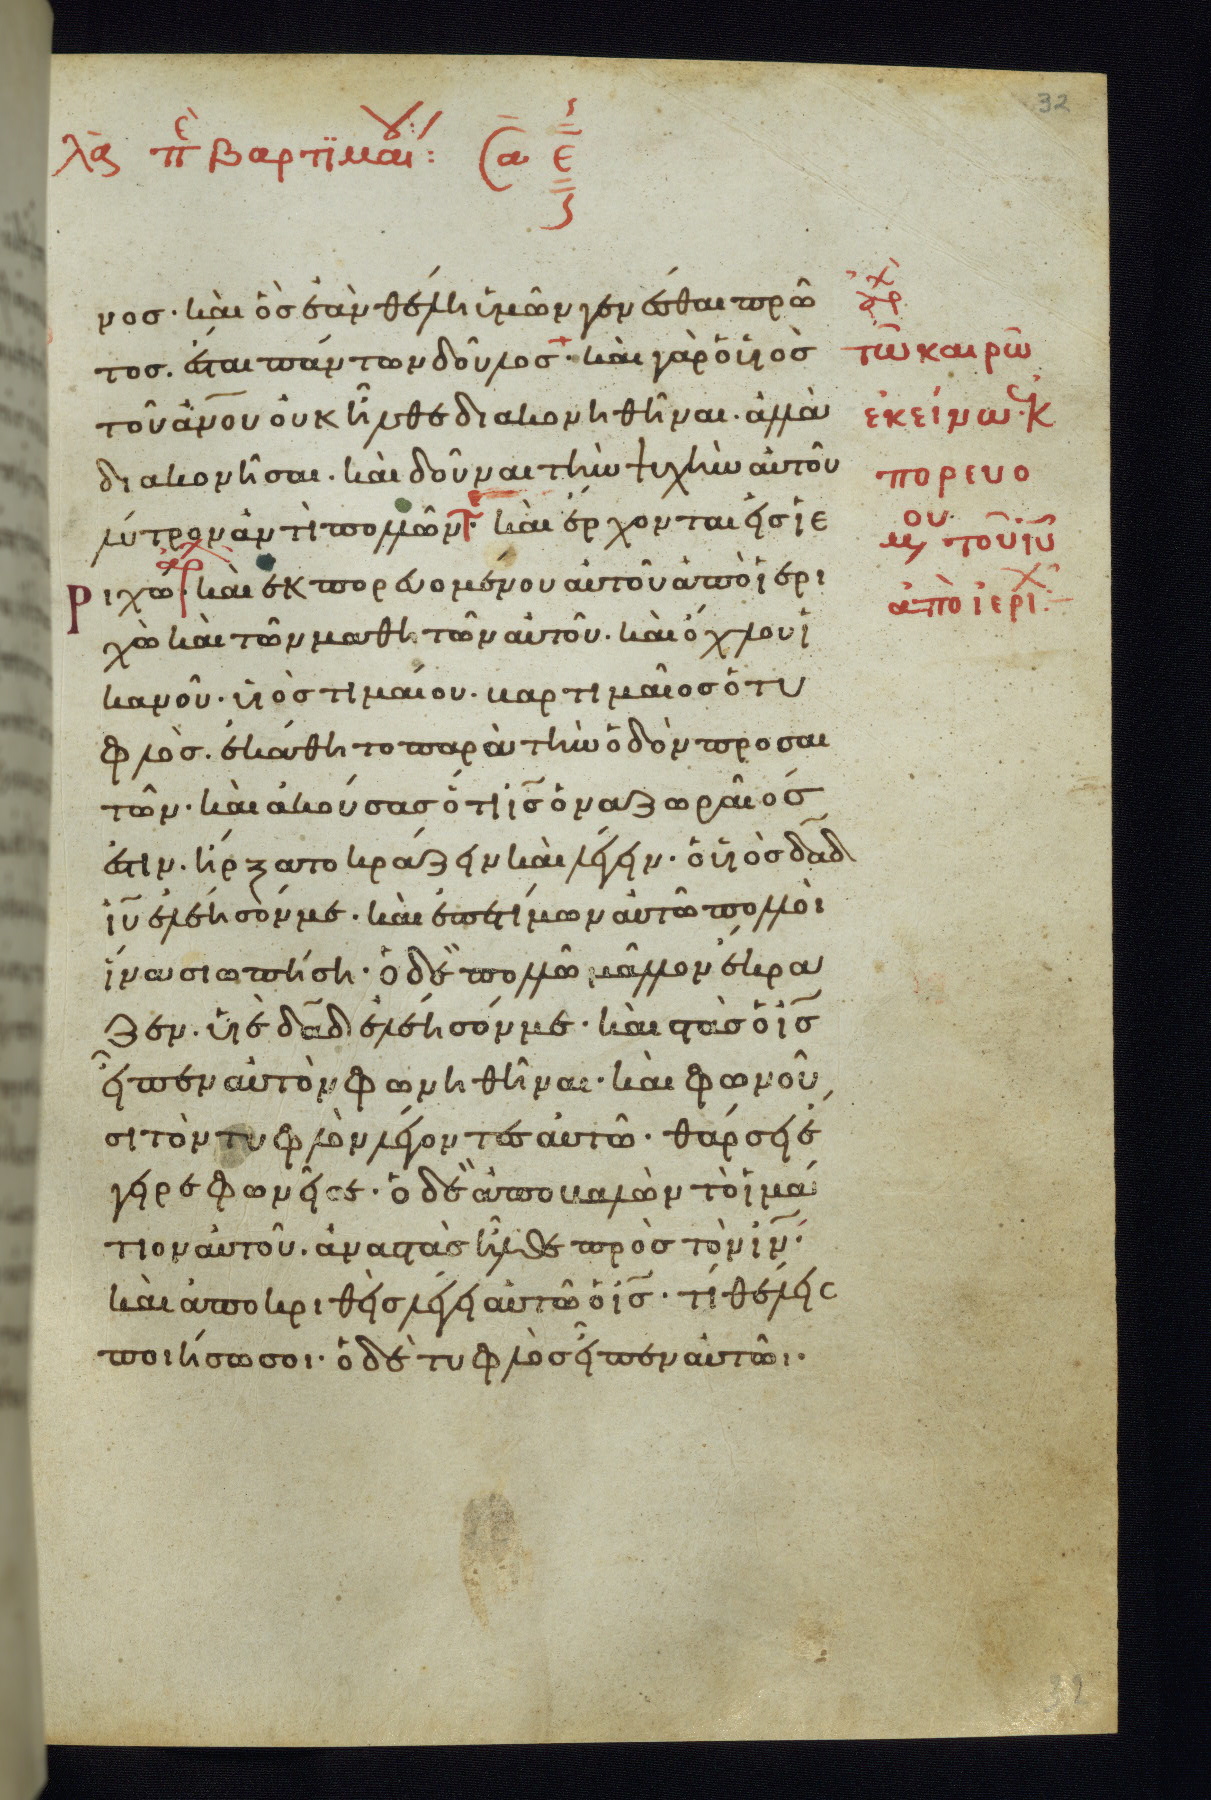 32
λα πε βαρτιμαι: Ϛα ε
νοσ· καὶ ὃσ ἐὰν θέλη ὑμῶν γενέσθαι πρῶ
τοσ. ἔσται πάντων δοῦλοσ· καὶ γὰρ ὁ υἱὸσ
τοῦ ἀν̅ου οὐκ ἦλθε διακονηθῆναι. ἀλλὰ
διακονῆσαι. καὶ δοῦναι τὴν ψυχὴν αὐτοῦ
λύτρον ἀντὶ πολλῶν· καὶ ἔρχονται εἰσ ἱε
ριχώ· καὶ ἐκπορευομένου αὐτοῦ ἀπὸ ἱερι
χὼ καὶ τῶν μαθητῶν αὐτοῦ. καὶ ὄχλου ἱ
κανοῦ· υἱὸσ τιμαίου. βαρτιμαῖοσ ὁ τυ
φλὸσ. ἐκάθητο παρὰ τὴν ὁδὸν προσαι
τῶν· καὶ ἀκούσασ ὅτι ι̅σ ὁ ναζωραῖόσ
ἐστιν. ἤρξατο κράζειν καὶ λέγειν· ὁ υἱὸσ δα̅δ
ι̅υ ἐλέησόν με. καὶ ἐπετίμων αὐτῶ πολλοὶ
ἵνα σιωπήση· ὁ δὲ πολλῶ μᾶλλον ἔκρα
ζεν. υἱὲ δα̅δ ἐλέησόν με· καὶ στὰσ ὁ ι̅σ
εἶπεν αὐτὸν φωνηθῆναι· καὶ φωνοῦ
σι τὸν τυφλὸν λέγοντεσ αὐτῶ· θάρσει ἔ
γειρε φωνεῖ σε· ὁ δὲ ἀποβαλὼν τὸ ἱμά
τιον αὐτοῦ. ἀναστὰσ ἦλθε πρὸσ τὸν ι̅ν·
καὶ ἀποκριθεὶσ λέγει αὐτῶ ὁ ι̅σ· τί θέλεισ
ποιήσω σοι· ὁ δὲ τυφλὸσ εἶπεν αὐτῶι·
ἀρχ
τῶ καιρῶ
ἐκείνω· κ
πορευο
μου τοῦ ι̅υ
ἀπὸ ἱεριχ
32